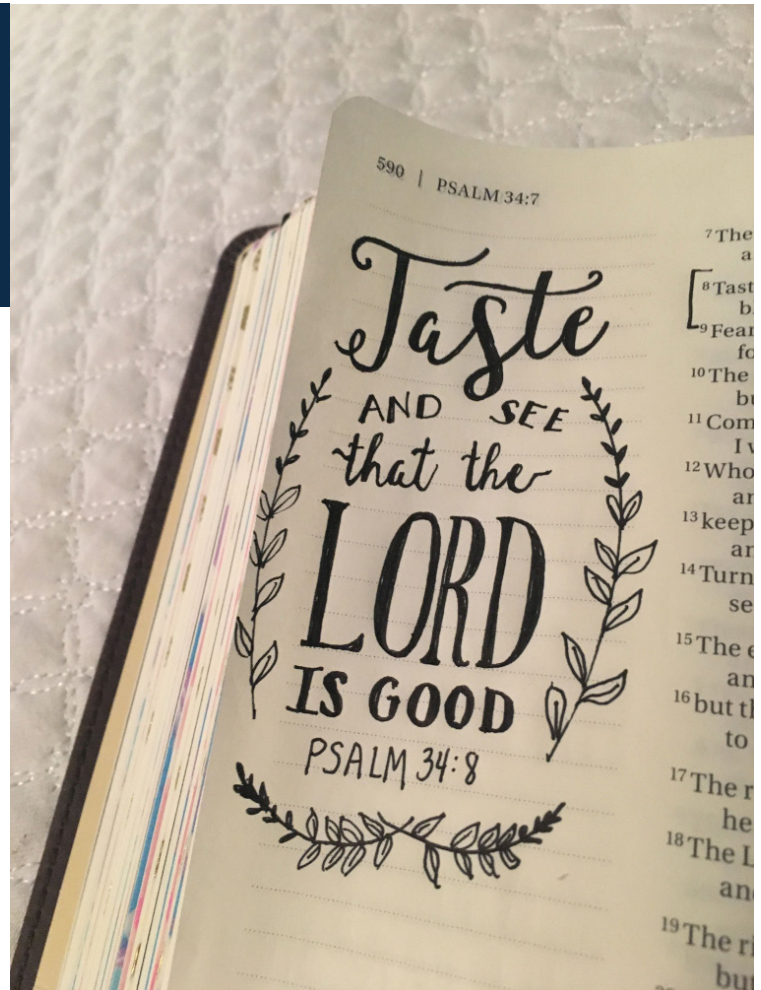 590 | PSALM 34:7
Taste
AND SEE
that the
LORD
IS GOOD
PSALM 34:8
7 The
a
8 Tast
b
9 Fear
fo
10 The
bu
11 Com
I
12 Who
ar
13 keep
an
14 Turn
se
15 The
an
16 but th
to
17 The r
he
18 The L
and
19 The ri
but